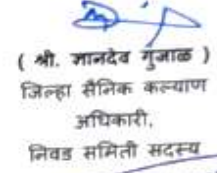 ( श्री. ज्ञानदेव गुंजाळ )
जिल्हा सैनिक कल्याण
अधिकारी,
निवड समिती सदस्य